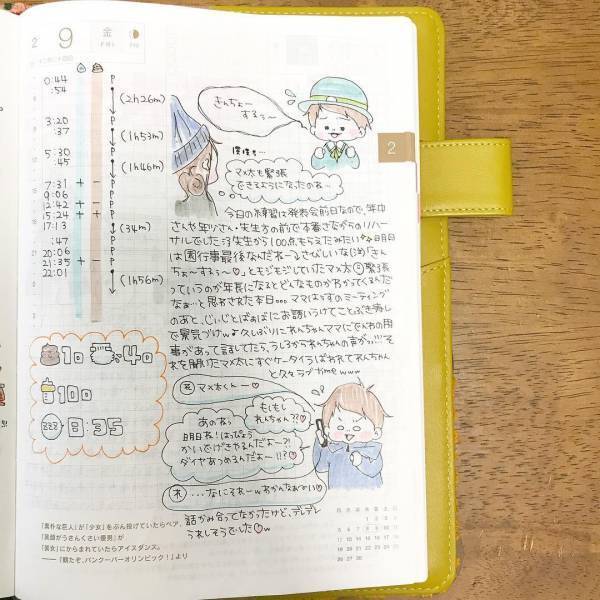 2
9
金
FRI
0:44
:54
3:20
:37
5:30
:45
7:31
9:06
12:42
15:24
17:13
:47
20:06
21:35
22:01
P
(2h26m)
P
(1h53m)
P
(1h46m)
P
P
P
P
(34m)
P
P
(1h56m)
きんちょー
するぅ〜
2
マメ太も緊張
できるようになったのね…
今日の練習は発表会前日なので、年中
さんや年少さん・先生方の前で本番さながらのリハー
サルでした
先生から100点もらえたみたい
明日
は園行事最後なんだねーさびしいな
「きん
ちょーするぅ〜♡」ともじもじしていたマメ太
緊張
っていうのが年長になるとどんなものかわかってくるんだ
なぁ…と思わされた本日。。。ママははずのミーティング
のあと、じぃじとばぁばにお話しうけてことぶき寿し
で景気づけ
久しぶりにれんちゃんママにでんわの用
事があって話してたら、うしろかられんちゃんの声がっ!!!そ
れを聞いたマメ太にすぐケータイうばわれてれんちゃん
と久々ラブtime www
マメ太くんー♡
もしもし
れんちゃん??♡
あのねぅ
明日ね!はっぴょう
かいでげきやるんだよー?!
ダイヤあつめるんだよー!!?♡
れ …なにそれーw
話かみ合ってなかったけど、デレデレ
うれしそうでした♡w
1コ
4コ
100
8:35
「素朴な巨人」が「少女」をぶん投げていたらペア、
「笑顔がうさんくさい優男」が
「美女」にからまれていたらアイスダンス。
——『観たぞ、バンクーバーオリンピック!』より